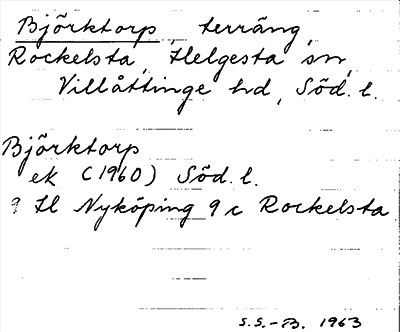 Björktorp, terräng,
Rockelsta, Helgesta sn,
Villåttinge hd, Söd. l.
Björktorp
ek (1960) Söd. l.
9 H Nyköping 9 c Rockelsta
S.S.-B. 1963